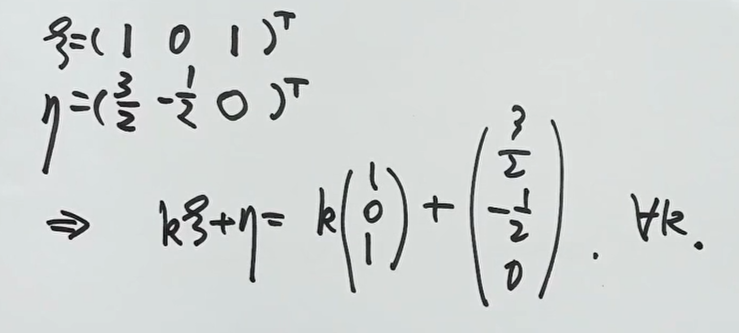 ξ=( 1 0 1 )ᵀ
η=( 3/2 -1/2 0 )ᵀ
⇒ kξ+η= k(1 0 1) + (3/2 -1/2 0). ∀k.